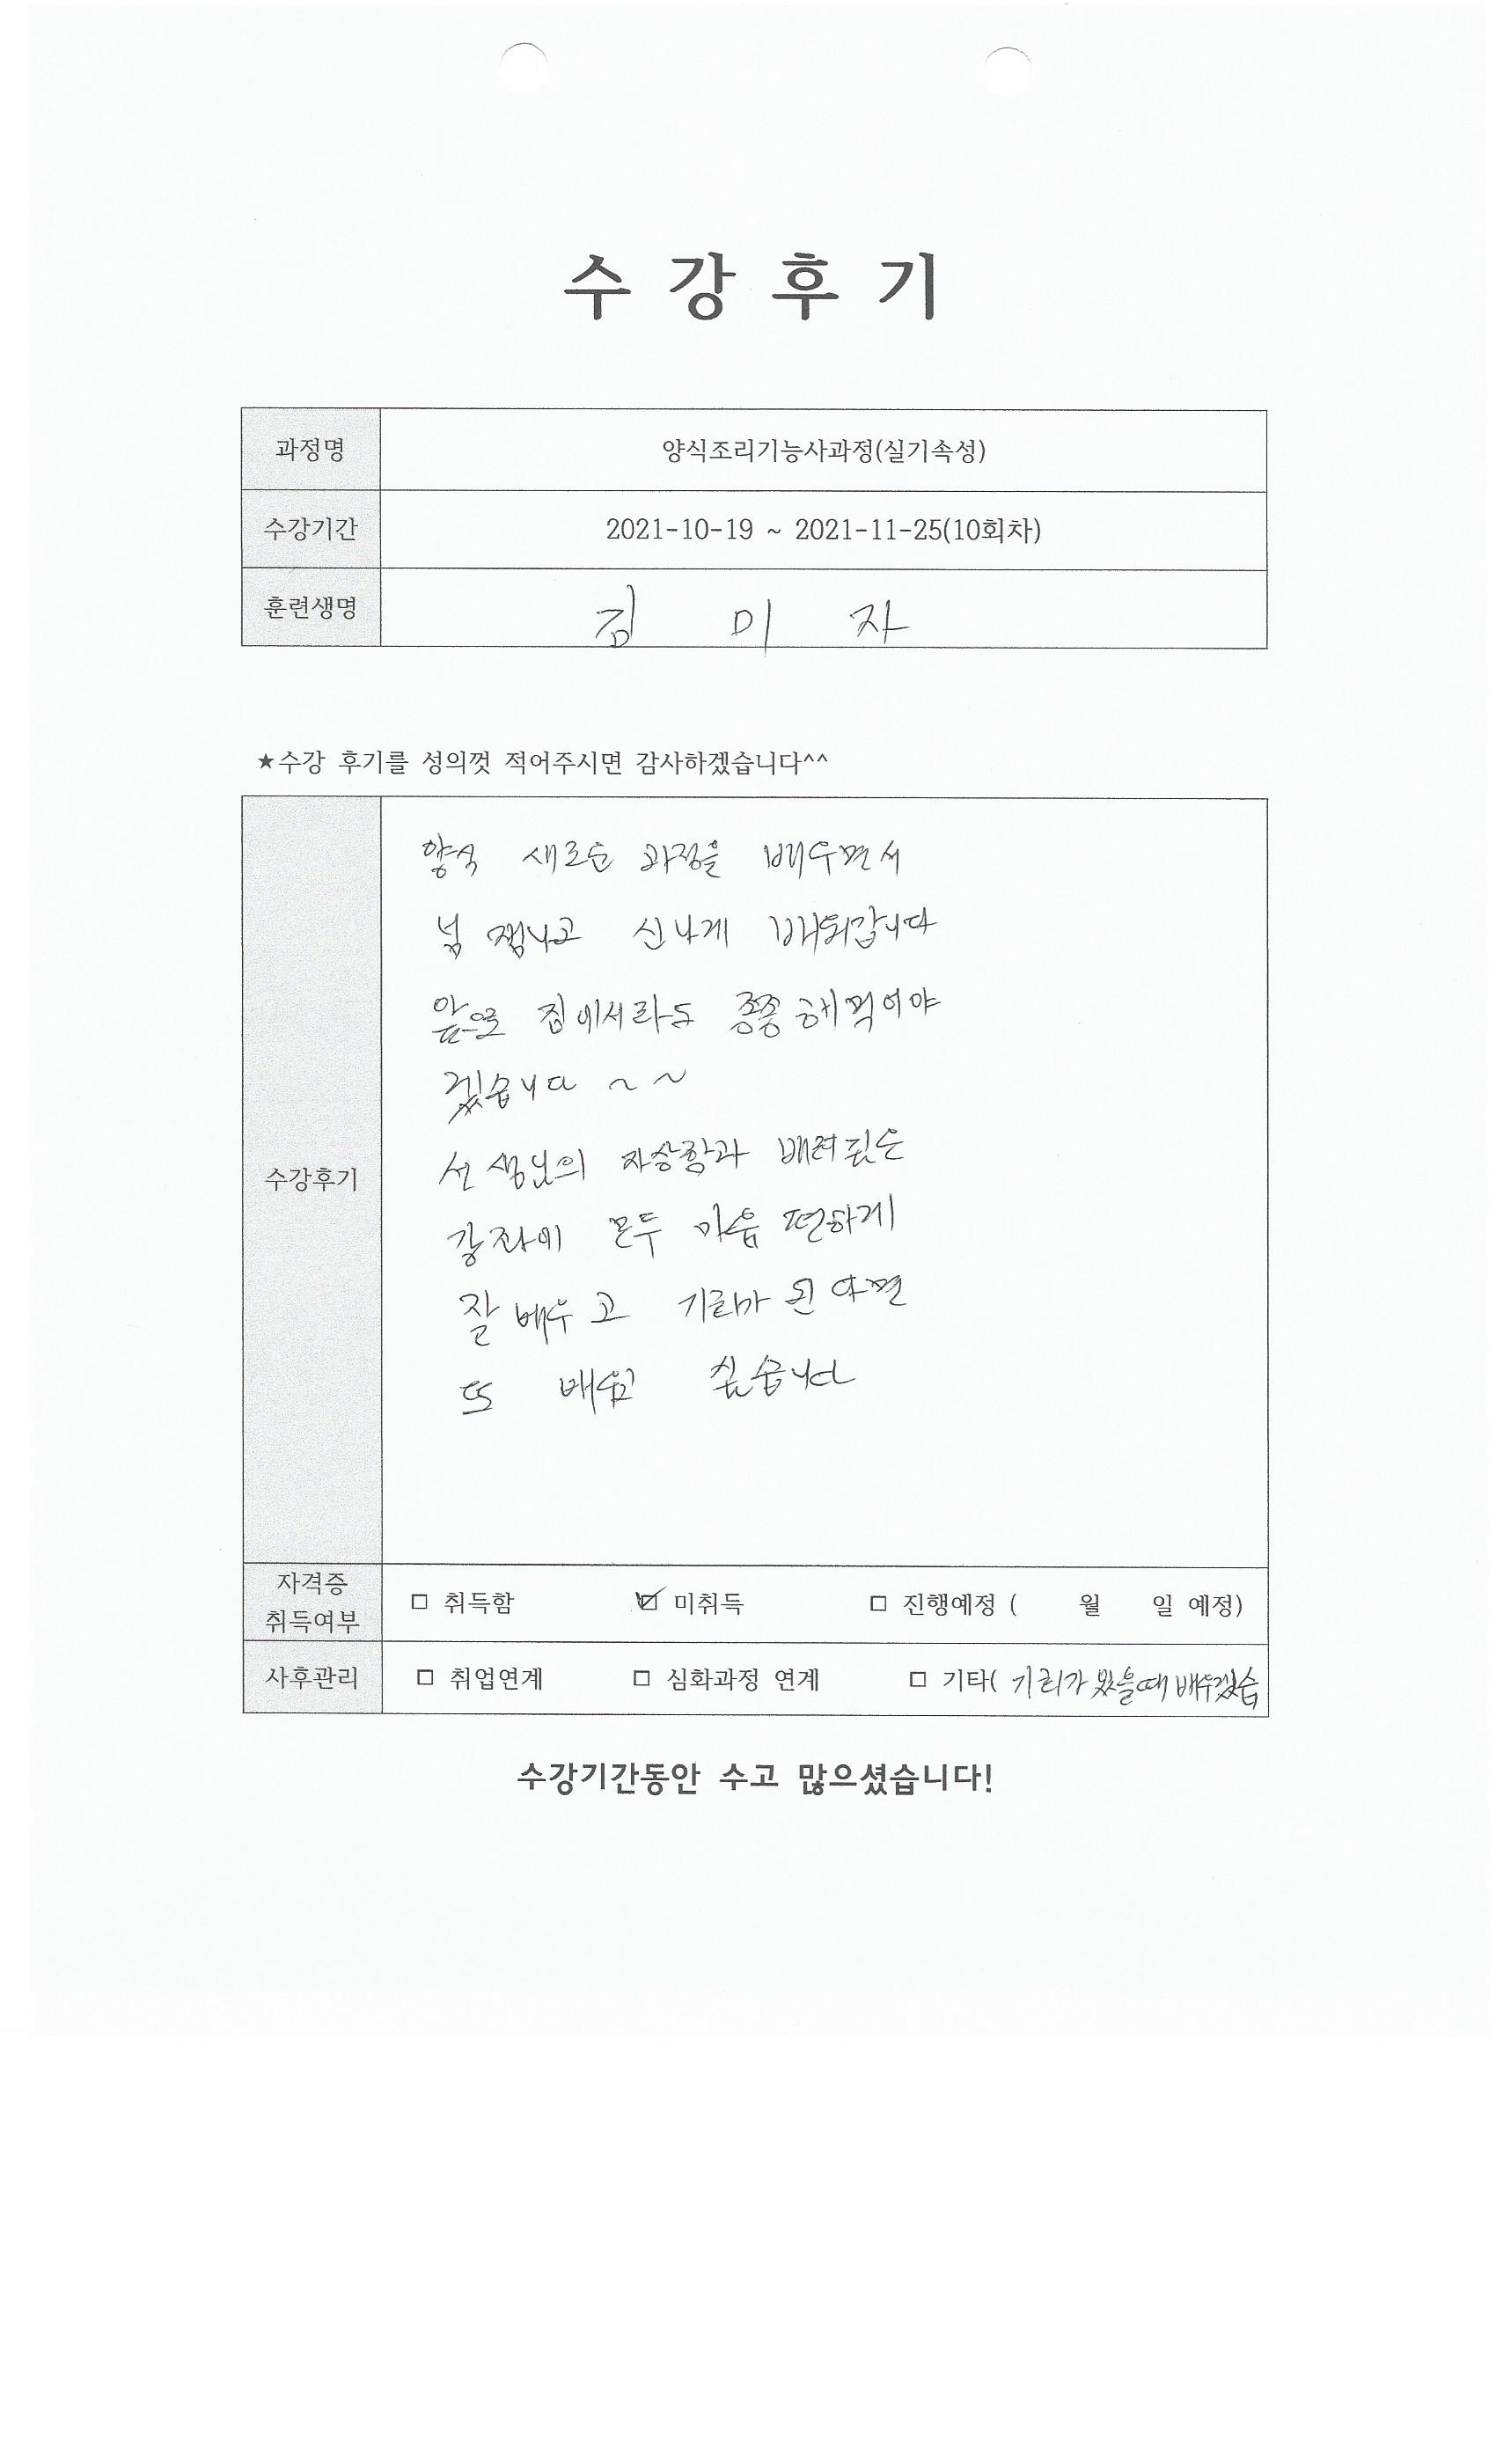 수 강 후 기
과정명 양식조리기능사과정(실기속성)
수강기간 2021-10-19 ~ 2021-11-25(10회차)
훈련생명 김 미 자
★수강 후기를 성의껏 적어주시면 감사하겠습니다^^
양식 새로운 과정을 배우면서
넘 잼나고 신나게 배워갑니다
앞으로 집에서라도 종종 해먹어야
겠습니다 ~ ~
수강후기
선생님의 자상함과 배려깊은
강좌에 모두 마음 편하게
잘 배우고
또 배우고 싶습니다
자격증
취득여부
□ 취득함 ☑ 미취득 □ 진행예정 ( 월 일 예정)
사후관리 □ 취업연계 □ 심화과정 연계 □ 기타( 배우겠습
수강기간동안 수고 많으셨습니다!